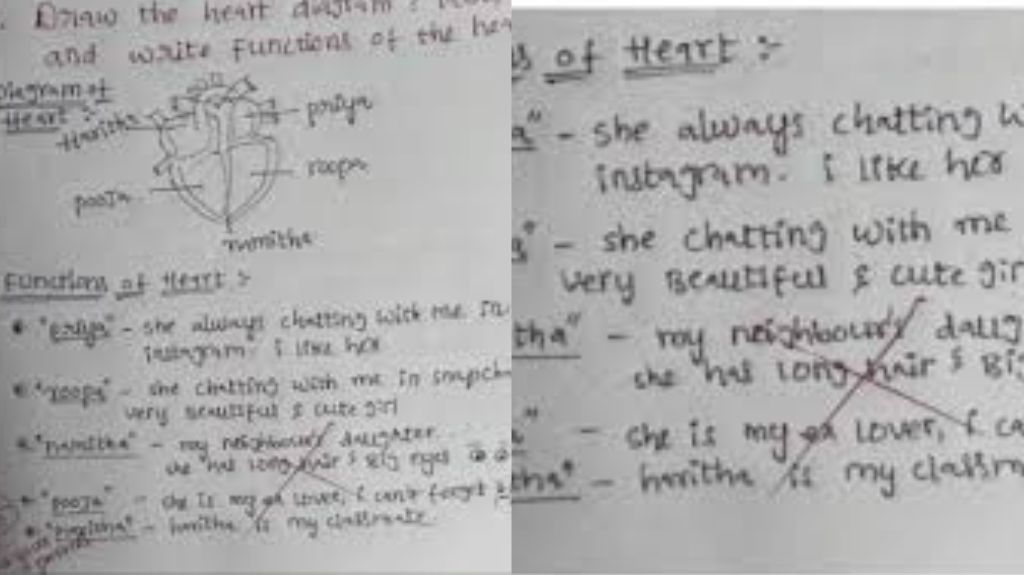 . Draw the heart diagram
and write functions of the
Diagram of
Heart :-
Haritha
priya
roopa
pooja
namitha
Functions of Heart :-
"priya" - she always chatting with me in
instagram. i like her
"roopa" - she chatting with me in snapch
very Beautiful & cute girl
"namitha" - my neighbour's daughter
she has long hair & Big eyes
"pooja" - she is my ex lover, i can't forget
"Haritha" - haritha is my classmate.
s of Heart :-
a" - she always chatting w
instagram. i like her
" - she chatting with me
very Beautiful & cute gir
tha" - my neighbour's daug
she has long hair & Big
" - she is my ex lover, i ca
tha" - haritha is my classm